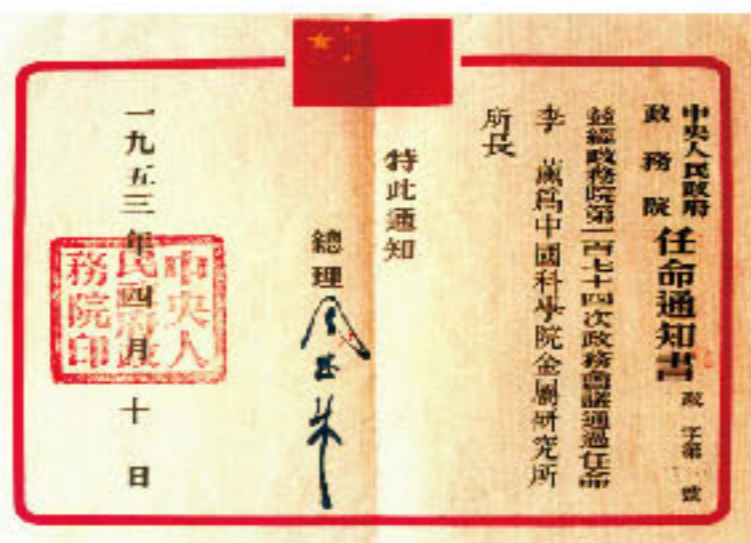 中央人民政府
政務院
任命通知書
政字第 號
茲經政務院第一百七十四次政務會議通過任命
李薰爲中國科學院金屬研究所
所長
特此通知
總理
一九五三年四月十日
中央人民政府政務院印